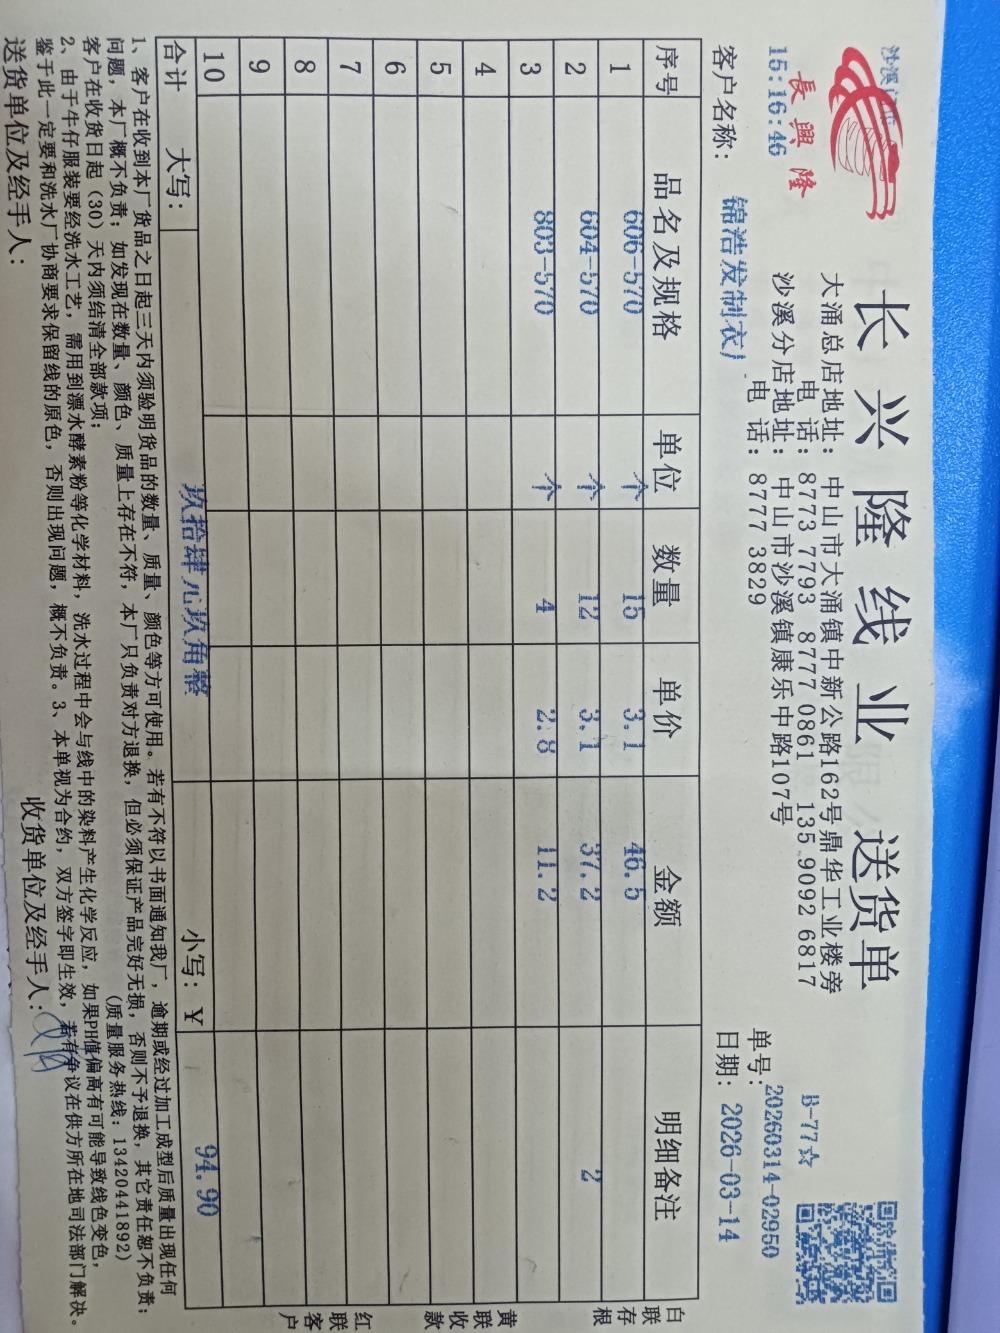 長興隆
15:16:46
长兴隆线业 送货单
大涌总店地址：中山市大涌镇中新公路162号鼎华工业楼旁
电 话：8773 7793 8777 0861 135 9092 6817
沙溪分店地址：中山市沙溪镇康乐中路107号
电 话：8777 3829
B-77☆
单号：20260314-02950
客户名称：锦浩发制衣厂
日期：2026-03-14
序号 品名及规格 单位 数量 单价 金额 明细备注
1 606-570 个 15 3.1 46.5
2 604-570 个 12 3.1 37.2 2
3 803-570 个 4 2.8 11.2
4
5
6
7
8
9
10
合计 大写：玖拾肆元玖角整 小写：￥ 94.90
白联存根
黄联收款
红联客户
1、客户在收到本厂货品之日起三天内须验明货品的数量、质量、颜色等方可使用。若有不符以书面通知我厂，逾期或经过加工成型后质量出现任何
问题，本厂概不负责；如发现在数量、颜色、质量上存在不符，本厂只负责对方退换，但必须保证产品完好无损，否则不予退换，其它责任恕不负责；
客户在收货日起（30）天内须结清全部款项； （质量服务热线：13420441892）
2、由于牛仔服装要经洗水工艺，需用到漂水酵素粉等化学材料，洗水过程中会与线中的染料产生化学反应，如果PH值偏高有可能导致线色变色，
鉴于此一定要和洗水厂协商要求保留线的原色，否则出现问题，概不负责。3、本单视为合约，双方签字即生效，若有争议在供方所在地司法部门解决。
送货单位及经手人： 收货单位及经手人：